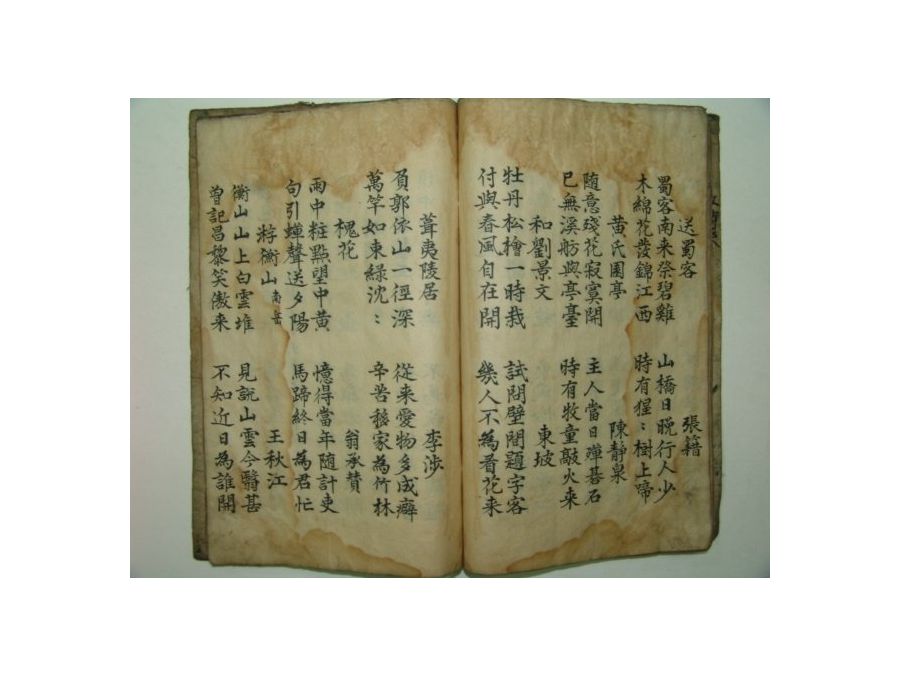 送蜀客
張籍
蜀客南来祭碧雞
木綿花發錦江西
山橋日晚行人少
時有猩〻樹上啼
黄氏園亭
陳静泉
随意殘花寂寞開
已無溪舫與亭臺
主人當日彈碁石
時有牧童敲火来
和劉景文
東坡
牡丹松檜一時栽
付與春風自在開
試問壁間題字客
幾人不為看花来
葺夷陵居
李渉
負郭依山一徑深
萬竿如束緑沈〻
從来愛物多成癖
辛苦移家為竹林
槐花
翁承賛
雨中粧點望中黄
句引蟬聲送夕陽
憶得當年随計吏
馬蹄終日為君忙
游衡山 南岳
王秋江
衡山山上白雲堆
曽記昌黎笑傲来
見說山雲今翳甚
不知近日為誰開